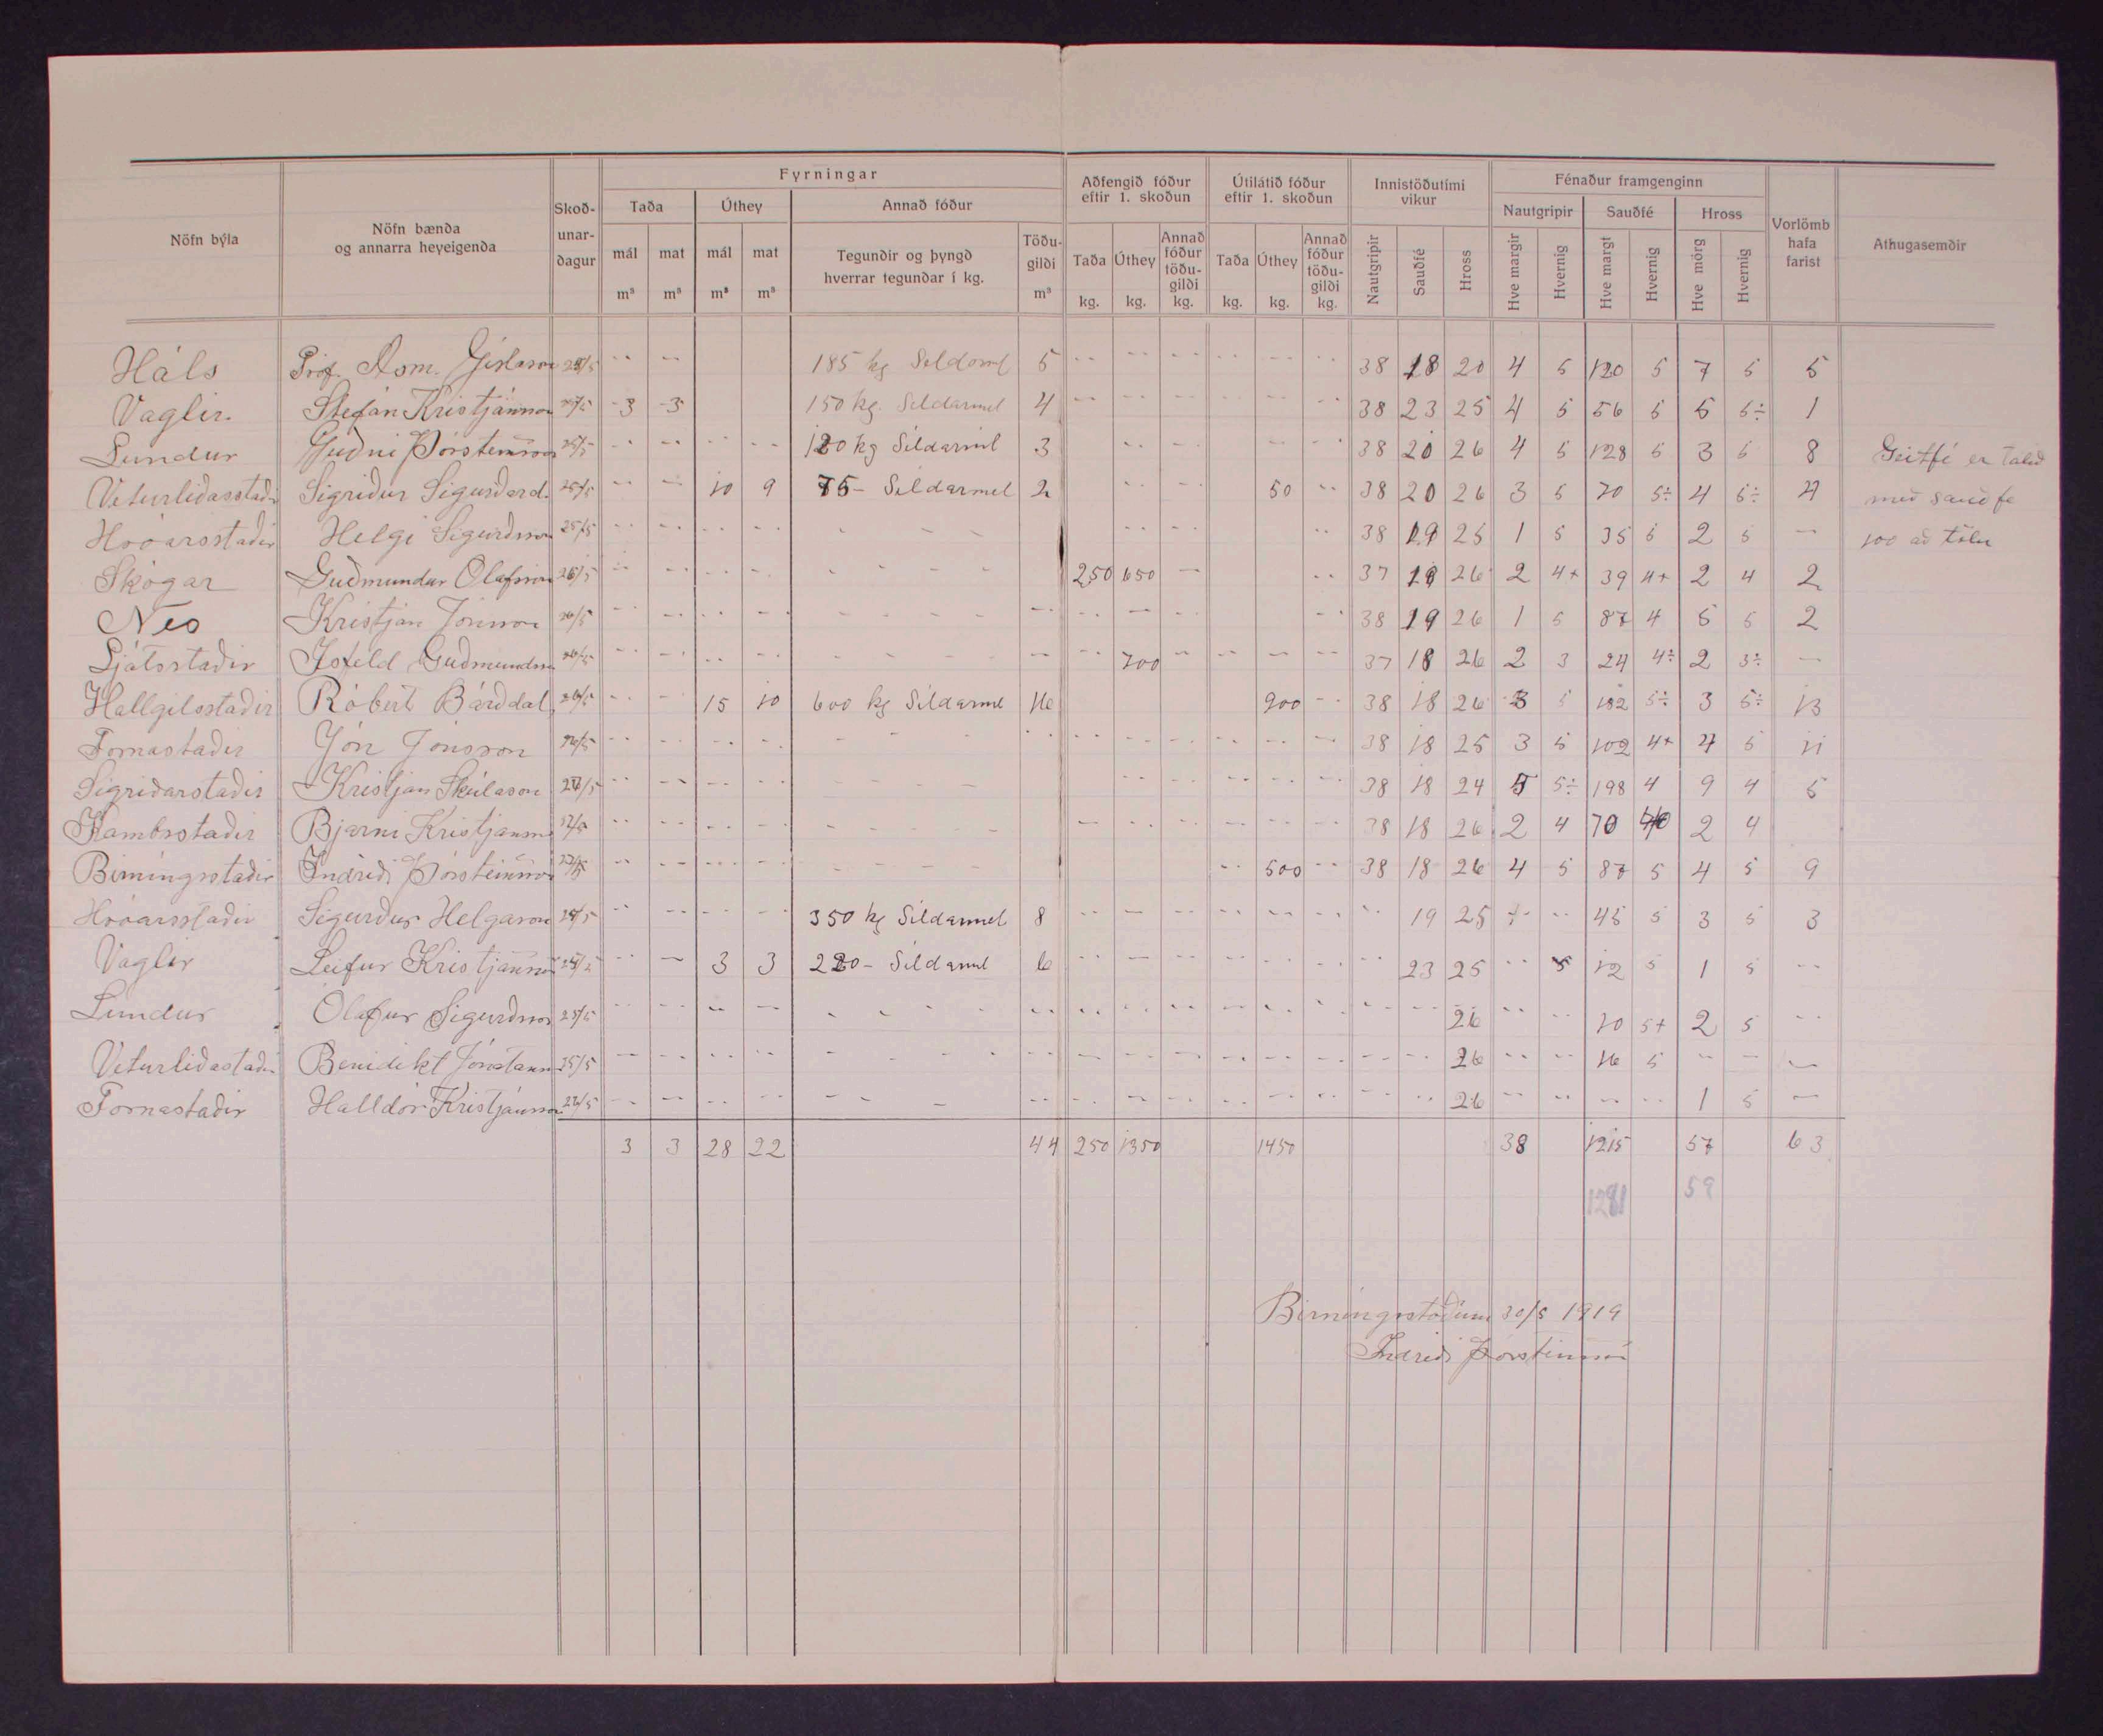 Nöfn býla | Nöfn bænda og annarra heyeigenda | Skoðunardagur | Fyrningar | Aðfengið fóður eftir 1. skoðun | Útilátið fóður eftir 1. skoðun | Innistöðutími vikur | Fénaður framgenginn | Vorlömb hafa farist | Athugasemdir
Taða | Úthey | Annað fóður | Nautgripir | Sauðfé | Hross
mál m³ | mat m³ | mál m³ | mat m³ | Tegundir og þyngd hverrar tegundar í kg. | Töðugildi m³ | Taða kg. | Úthey kg. | Annað fóður töðugildi kg. | Taða kg. | Úthey kg. | Annað fóður töðugildi kg. | Nautgripir | Sauðfé | Hross | Hve margir | Hvernig | Hve margt | Hvernig | Hve mörg | Hvernig
Háls Próf. Ásm. Gíslason 185 kg Síldarmél 5 38 18 20 4 5 120 5 7 5 5
Vaglir Stefán Kristjánsson 3 3 150 kg. Síldarmél 4 38 23 25 4 5 56 5 5 5÷ 1
Lundur Guðni Þorsteinsson 25/5 120 kg Síldarmél 3 38 20 26 4 5 128 5 3 5 8 Geitfé er talið
Veturliðastaðir Sigríður Sigurðard. 25/5 10 9 75 - Síldarmél 2 50 38 20 26 3 5 70 5÷ 4 5÷ 4 með sauðfé
Hróarsstaðir Helgi Sigurðsson 25/5 38 19 25 1 5 35 5 2 5 - 100 að tölu
Skógar Guðmundur Ólafsson 26/5 250 650 37 18 26 2 4+ 39 4+ 2 4 2
Nes Kristján Jónsson 26/5 38 19 26 1 5 87 4 5 5 2
Ljótsstaðir Ísfeld Guðmundss 26/5 700 37 18 26 2 3 24 4÷ 2 3÷ -
Hallgilsstaðir Róbert Bárðdal 26/5 15 10 600 kg Síldarmél 16 900 38 18 26 3 5 132 5÷ 3 5÷ 13
Fornastaðir Jón Jónsson 26/5 38 18 25 3 5 102 4+ 4 5 11
Sigríðarstaðir Kristján Skúlason 38 18 24 5 5÷ 198 4 9 4 5
Kambsstaðir Bjarni Kristjánss 27/5 38 18 26 2 4 70 2 4
Birningsstaðir Indriði Þorsteinsson 27/5 500 38 18 26 4 5 87 5 4 5 9
Hróarsstaðir Sigurður Helgason 350 kg Síldarmél 8 19 25 45 5 3 5 3
Vaglir Leifur Kristjánsson 3 3 220 - Síldarmél 6 23 25 5 12 5 1 5
Lundur Ólafur Sigurðsson 25/5 26 20 5+ 2 5
Veturliðastaðir Benidikt Jónatanss 25/5 26 16 5 -
Fornastaðir Halldór Kristjánsson 26/5 26 1 5 -
3 3 28 22 44 250 1350 1450 38 1215 57 63
1281 59
Birningsstöðum 30/5 1919
Indriði Þorsteinsson